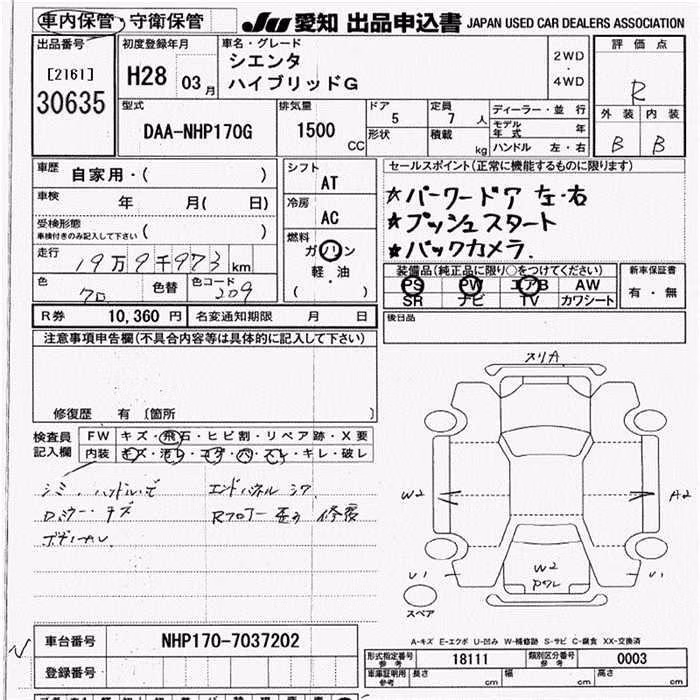 車内保管・守衛保管 JU 愛知 出品申込書 JAPAN USED CAR DEALERS ASSOCIATION
出品番号 初度登録年月 車名・グレード 評価点
[2161] H28 03月 シエンタ 2WD・4WD R
30635 ハイブリッドG
型式 排気量 ドア 定員 ディーラー・並行 外装 内装
DAA-NHP170G 1500CC 5 7人 モデル年式 年 B B
形状 積載 kg ハンドル 左・右
車歴 自家用・( ) シフト AT セールスポイント(正常に機能するものに限ります)
車検 年 月( 日) 冷房 AC ★パワードア 左・右
受検形態 車検付きのみ記入して下さい ( ) 燃料 ★プッシュスタート
走行 19万9千973km ガソリン ★バックカメラ.
色 クロ 色替 色コード 209 軽・油 ( )
装備品(純正品に限り○をつけてください) 新車保証書
PS PW エアB AW 有・無
SR ナビ TV カワシート
R券 10,360円 名変通知期限 月 日 後日品
注意事項申告欄(不具合内容等は具体的に記入して下さい)
修復歴 有〔箇所 〕
検査員記入欄 FW キズ・飛石・ヒビ割・リペア跡・X要
内装 キズ・汚レ・コゲ・穴・スレ・キレ・破レ
シミ・ハンドルスレ エンドパネル シワ
Dミラー キズ Rフロアー 歪み 修復
スリA
W2 A2
U1 W2 U1
スペア
A-キズ E-エクボ U-凹み W-補修跡 S-サビ C-腐食 XX-交換済
車台番号 NHP170-7037202
登録番号
形式指定番号 参考 18111 類別区分番号 参考 0003
車庫証明用 参考 長さ cm 幅 cm 高さ cm